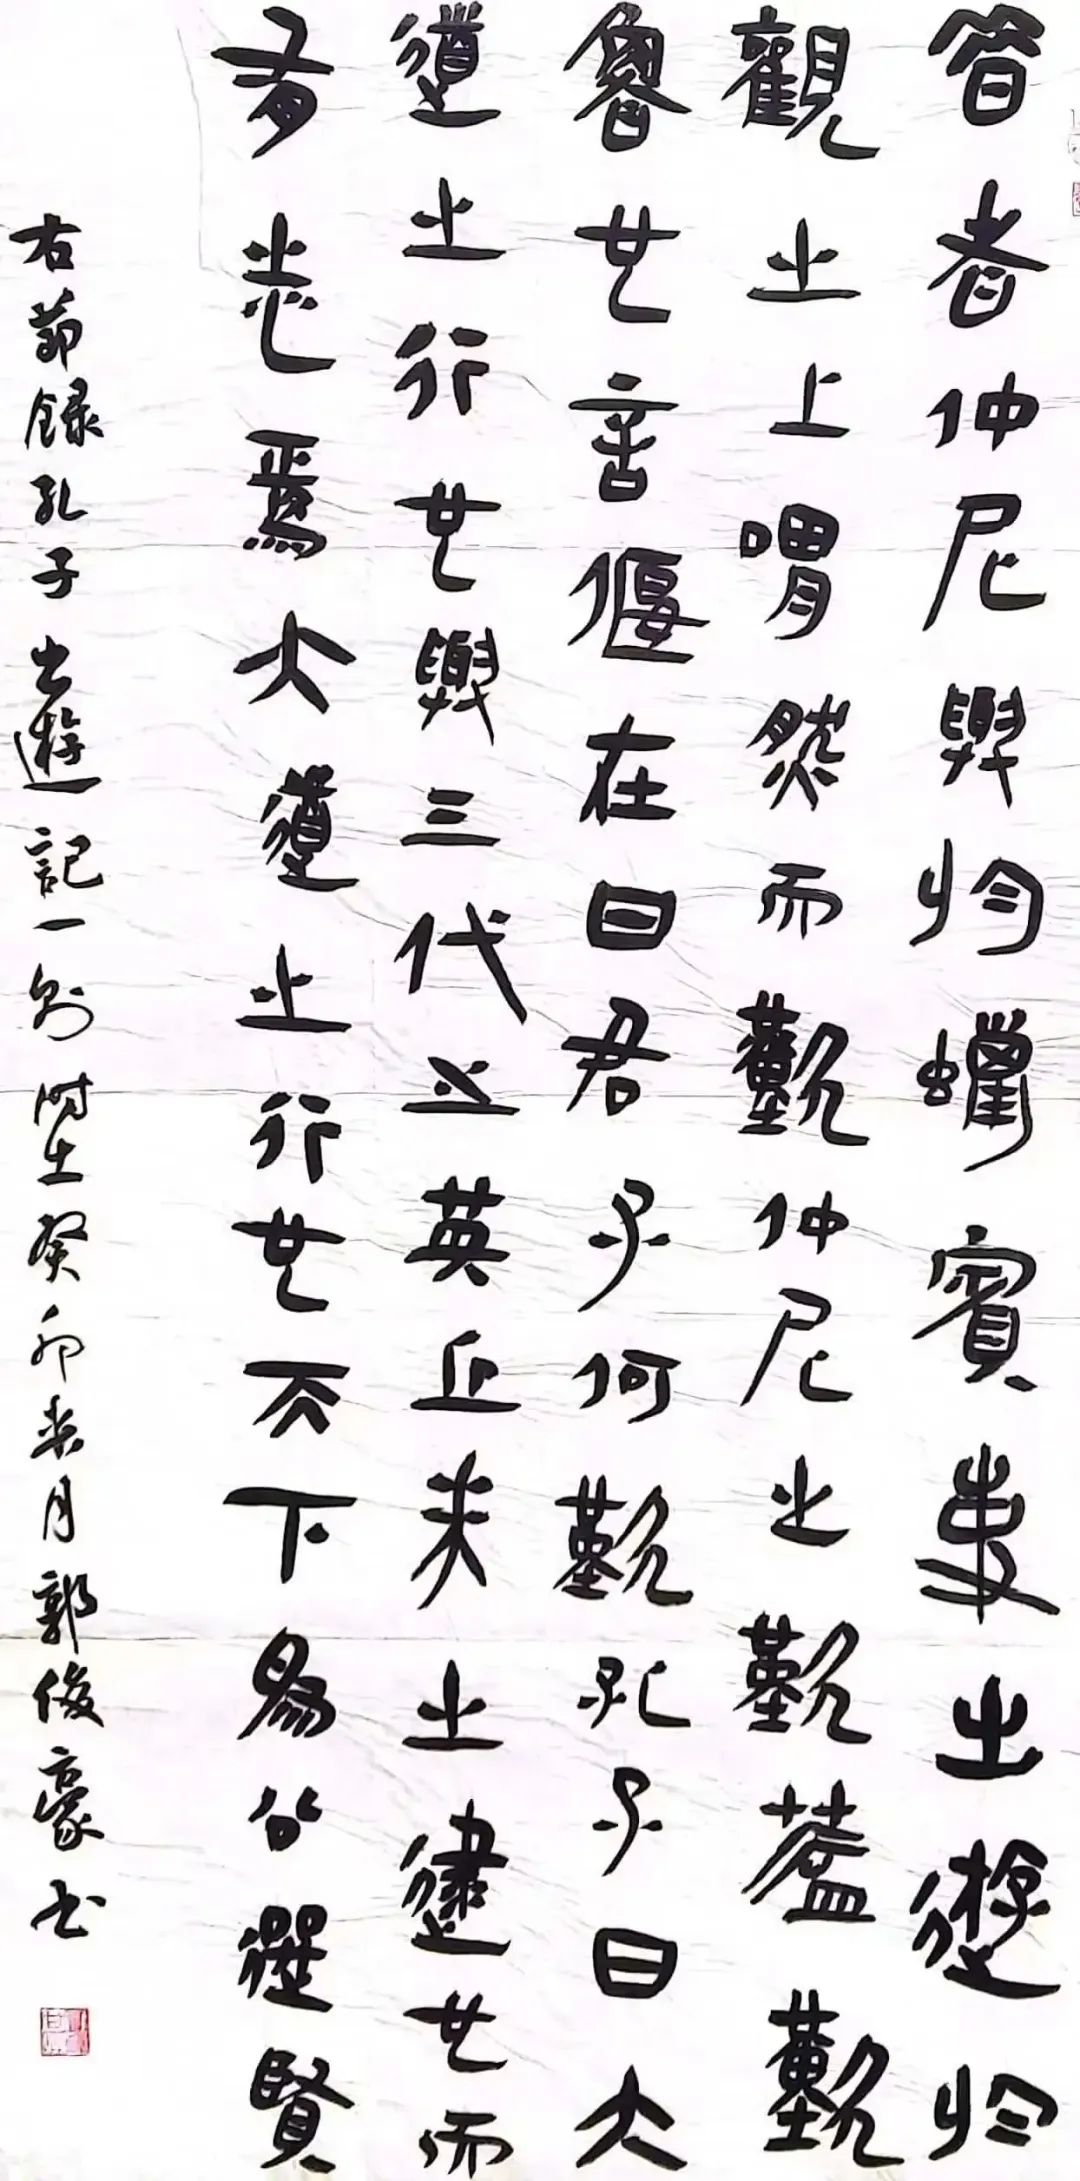 昔者仲尼與於蠟賓事出遊於
觀之上喟然而歎仲尼之歎蓋歎
魯也言偃在曰君子何歎孔子曰大
道之行也與三代之英丘未之逮也而
有志焉大道之行也天下為公選賢
右節錄孔子出遊記一則時在癸卯月郭俊豪书